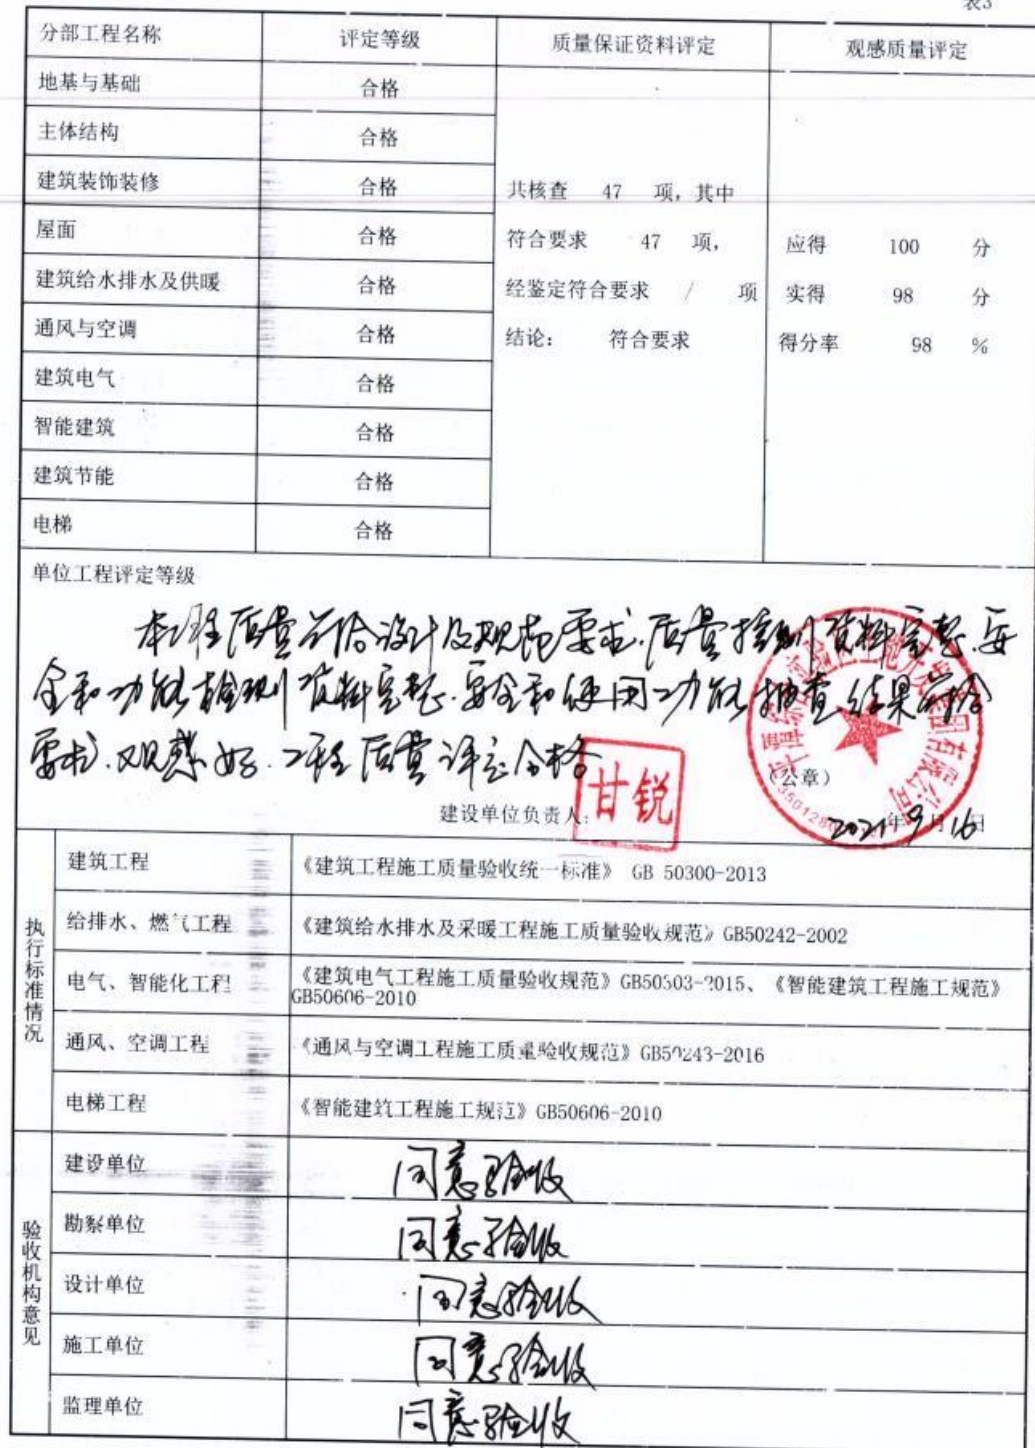 表3
分部工程名称 评定等级 质量保证资料评定 观感质量评定
地基与基础 合格
主体结构 合格
建筑装饰装修 合格 共核查 47 项,其中
屋面 合格 符合要求 47 项, 应得 100 分
建筑给水排水及供暖 合格 经鉴定符合要求 / 项 实得 98 分
通风与空调 合格 结论: 符合要求 得分率 98 %
建筑电气 合格
智能建筑 合格
建筑节能 合格
电梯 合格
单位工程评定等级
本工程质量符合设计及规范要求.质量控制资料完整.安
全和功能检测资料完整.安全和使用功能抽查结果符合
要求.观感好.工程质量评定合格
(公章)
建设单位负责人: 甘锐
2021年9月16日
执行标准情况
建筑工程 《建筑工程施工质量验收统一标准》 GB 50300-2013
给排水、燃气工程 《建筑给水排水及采暖工程施工质量验收规范》GB50242-2002
电气、智能化工程 《建筑电气工程施工质量验收规范》GB50303-2015、《智能建筑工程施工规范》
GB50606-2010
通风、空调工程 《通风与空调工程施工质量验收规范》GB50243-2016
电梯工程 《智能建筑工程施工规范》GB50606-2010
验收机构意见
建设单位 同意验收
勘察单位 同意验收
设计单位 同意验收
施工单位 同意验收
监理单位 同意验收